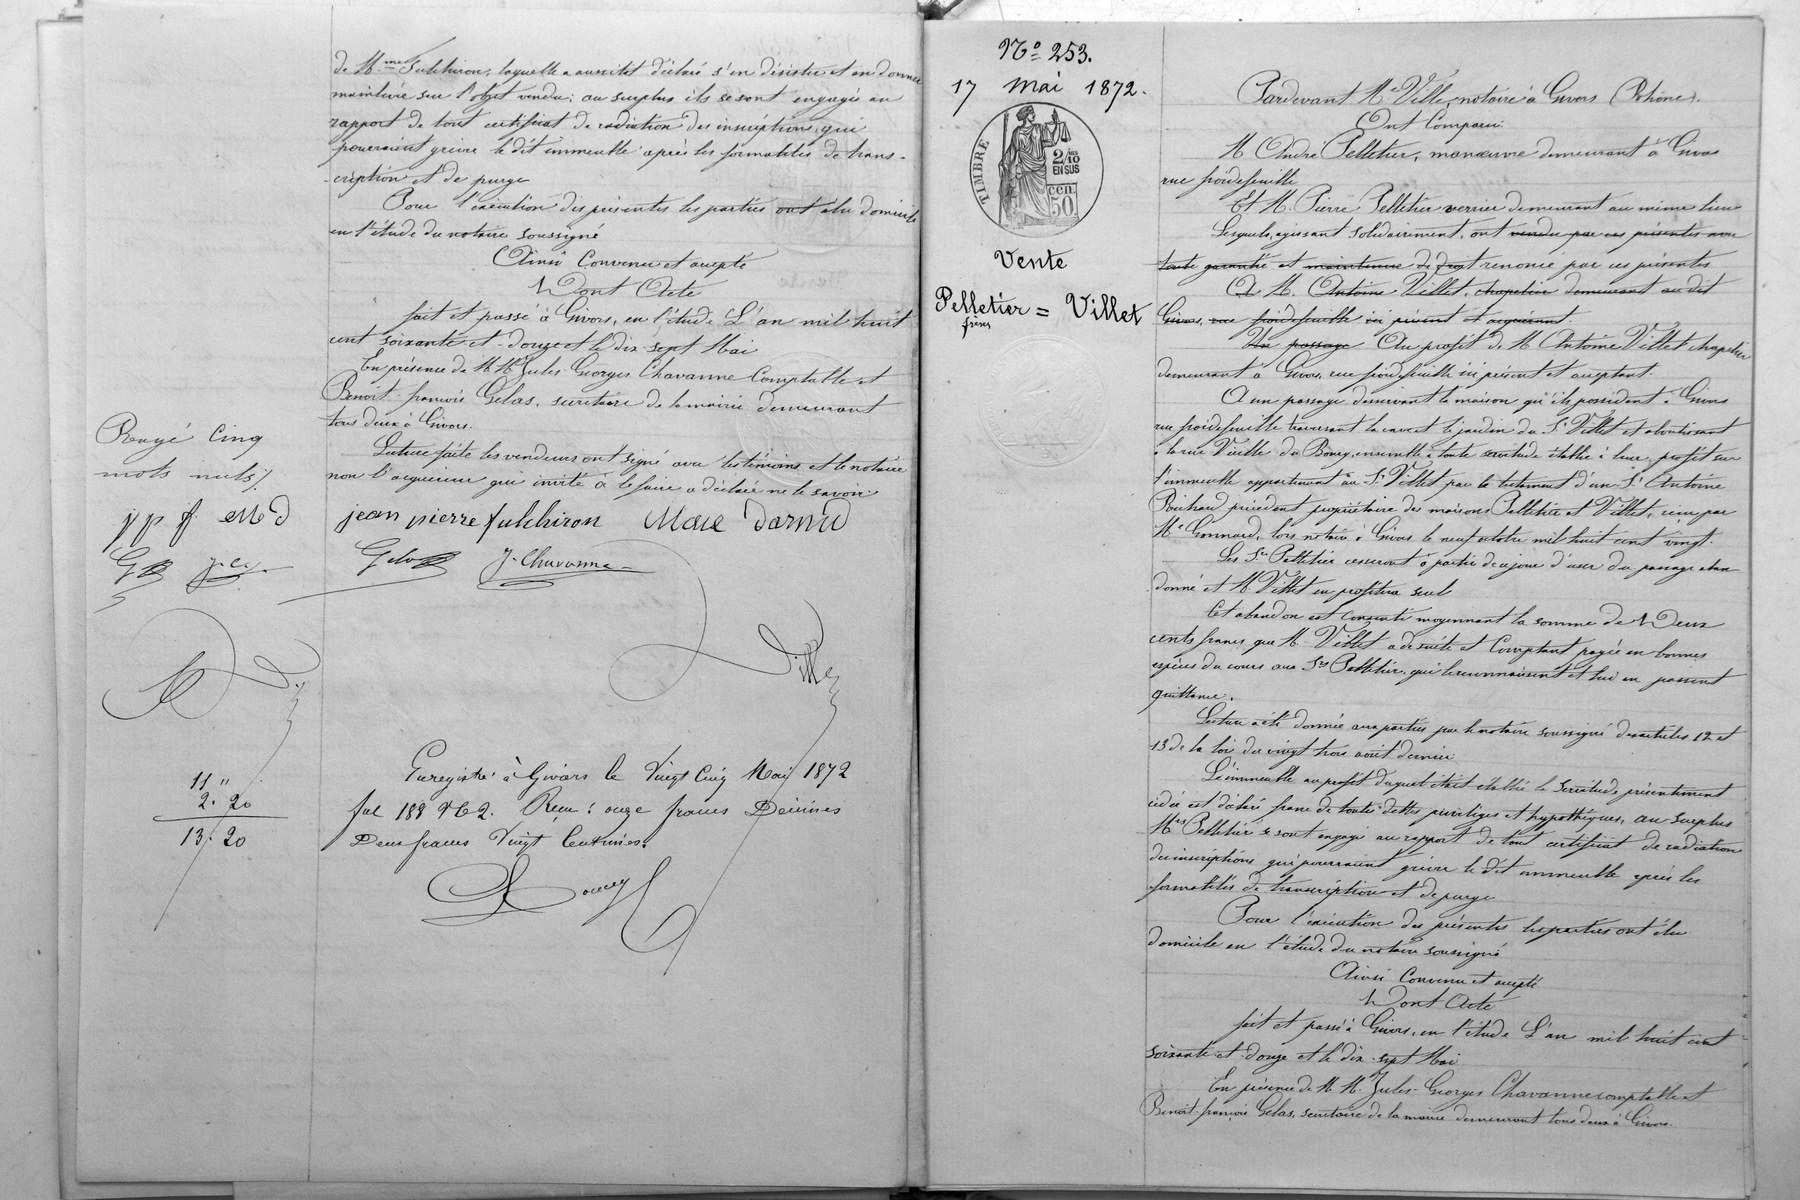 de M.me Fulchiron, laquelle a aussitôt déclaré s'en désister et en donner
mainlevée sur l'objet vendu; au surplus ils se sont engagés au
rapport de tout certificat de radiation des inscriptions qui
pourraient grever le dit immeuble après les formalités de trans-
-cription et de purge
Pour l'exécution des présentes les parties ont élu domicile
en l'étude du notaire soussigné
Ainsi Convenu et accepté
Dont Acte
fait et passé à Givors, en l'étude L'an mil huit
cent soixante et douze et le dix sept Mai
En présence de M.M. Jules Georges Chavanne Comptable et
Benoit françois Gelas, secrétaire de la mairie demeurant
tous deux à Givors.
Lecture faite les vendeurs ont signé avec les témoins et le notaire
non l'acquéreur qui invité à le faire a déclaré ne le savoir
Rayé Cinq
mots nuls
jpf
jean pierre fulchiron
Gelas J. Chavanne
Ville
Enregistré à Givors le Vingt Cinq Mai 1872
fol 188 V C 2. Reçu: onze francs Décimes
Deux francs Vingt Centimes.
11 "
2. 20
13. 20
No 253.
17 Mai 1872.
TIMBRE
2/10
EN SUS
cen.
50
Vente
Pelletier = Villet
frères
Pardevant Me Ville, notaire à Givors (Rhône).
Ont Comparu:
M. André Pelletier, manœuvre demeurant à Givors
rue froidefeuille
Et M. Pierre Pelletier verrier demeurant au même lieu
Lesquels, agissant solidairement, ont vendu par ces présentes avec
toute garantie et maintenue de droit renoncé par ces présentes
A M. Antoine Villet, chapelier demeurant au dit
Givors, rue froidefeuille ici présent et acquérant
Un passage Au profit de M. Antoine Villet chapelier
demeurant à Givors, rue froidefeuille ici présent et acceptant.
A un passage desservant la maison qu'ils possèdent à Givors
rue froidefeuille traversant la cave et le jardin du Sr Villet et aboutissant
à la rue Vieille du Bourg, ensemble à toute servitude établie à leur profit sur
l'immeuble appartenant au Sr Villet par le testament d'un Sr Antoine
précédent propriétaire des maisons Pelletier et Villet, reçu par
Me Gonnard, lors notaire à Givors le neuf octobre mil huit cent vingt.
Les Srs Pelletier cesseront à partir de ce jour d'user du passage aban
donné et M. Villet en profitera seul
Cet abandon est consenti moyennant la somme de Deux
cents francs que M. Villet a de suite et Comptant payée en bonnes
espèces du cours aux Srs Pelletier, qui le reconnaissent et lui en passent
quittance.
Lecture a été donnée aux parties par le notaire soussigné des articles 12 et
13 de la loi du vingt trois août dernier
L'immeuble au profit duquel était établie la servitude présentement
cédée est déclaré franc de toutes dettes privilèges et hypothèques, au surplus
Mrs Pelletier se sont engagés au rapport de tout certificat de radiation
des inscriptions qui pourraient grever le dit immeuble après les
formalités de transcription et de purge
Pour l'exécution des présentes les parties ont élu
domicile en l'étude du notaire soussigné
Ainsi Convenu et accepté
Dont Acte
fait et passé à Givors, en l'étude L'an mil huit cent
soixante et douze et le dix sept Mai
En présence de M.M. Jules Georges Chavanne comptable et
Benoit françois Gelas, secrétaire de la mairie demeurant tous deux à Givors.